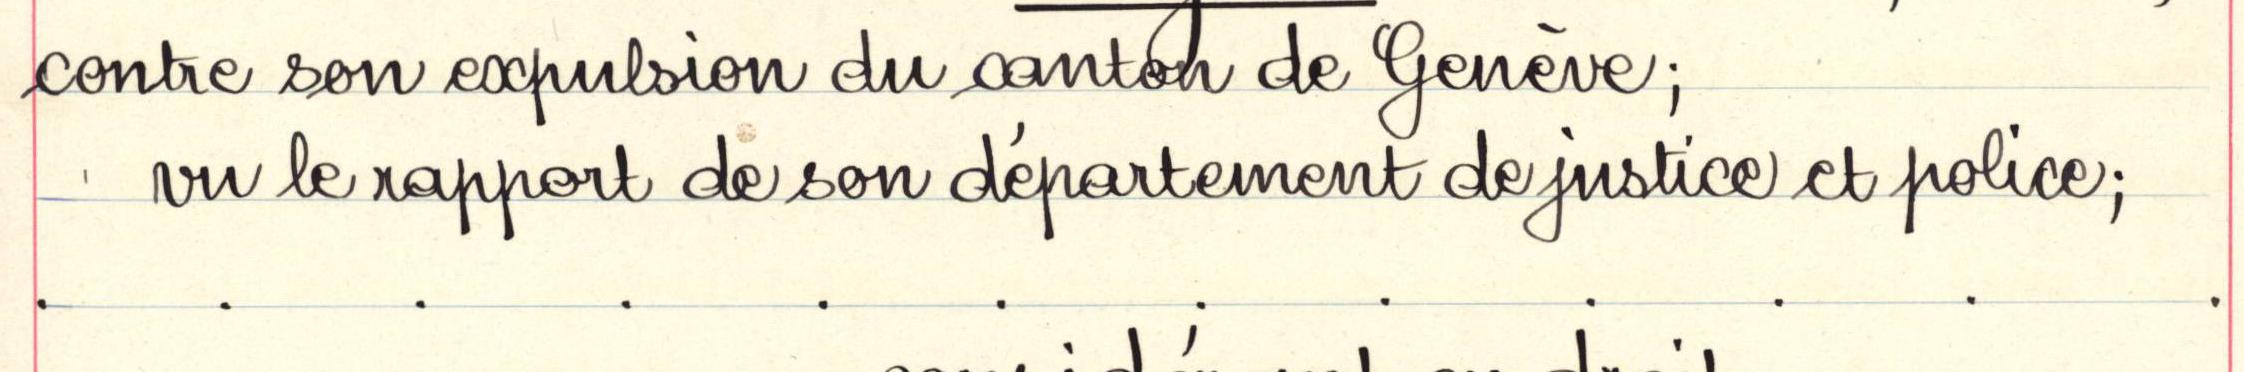 contre son expulsion du canton de Genève;
vu le rapport de son département de justice et police;
. . . . . . . . . . . .
considérant en droit